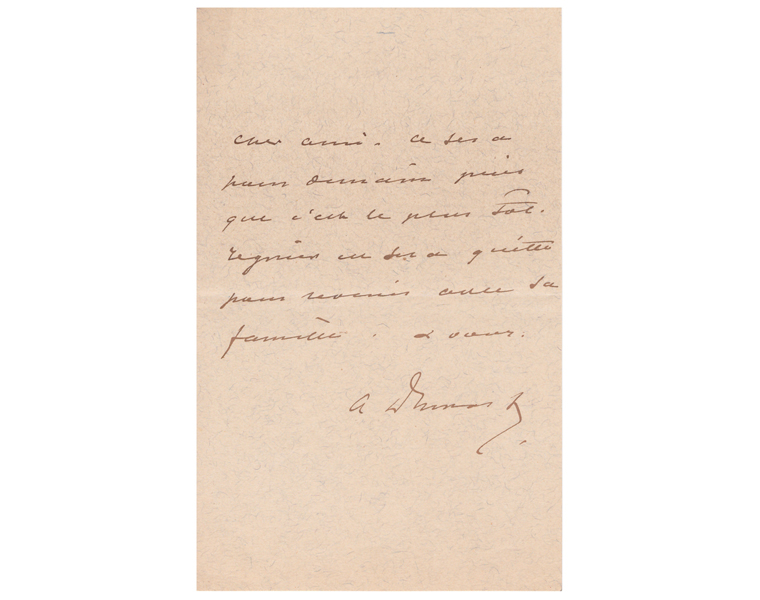 cher ami. ce sera
pour demain puis
que c'est le plus tôt.
regnier en sera quitte
pour revenir avec sa
famille. à vous.
A Dumas f